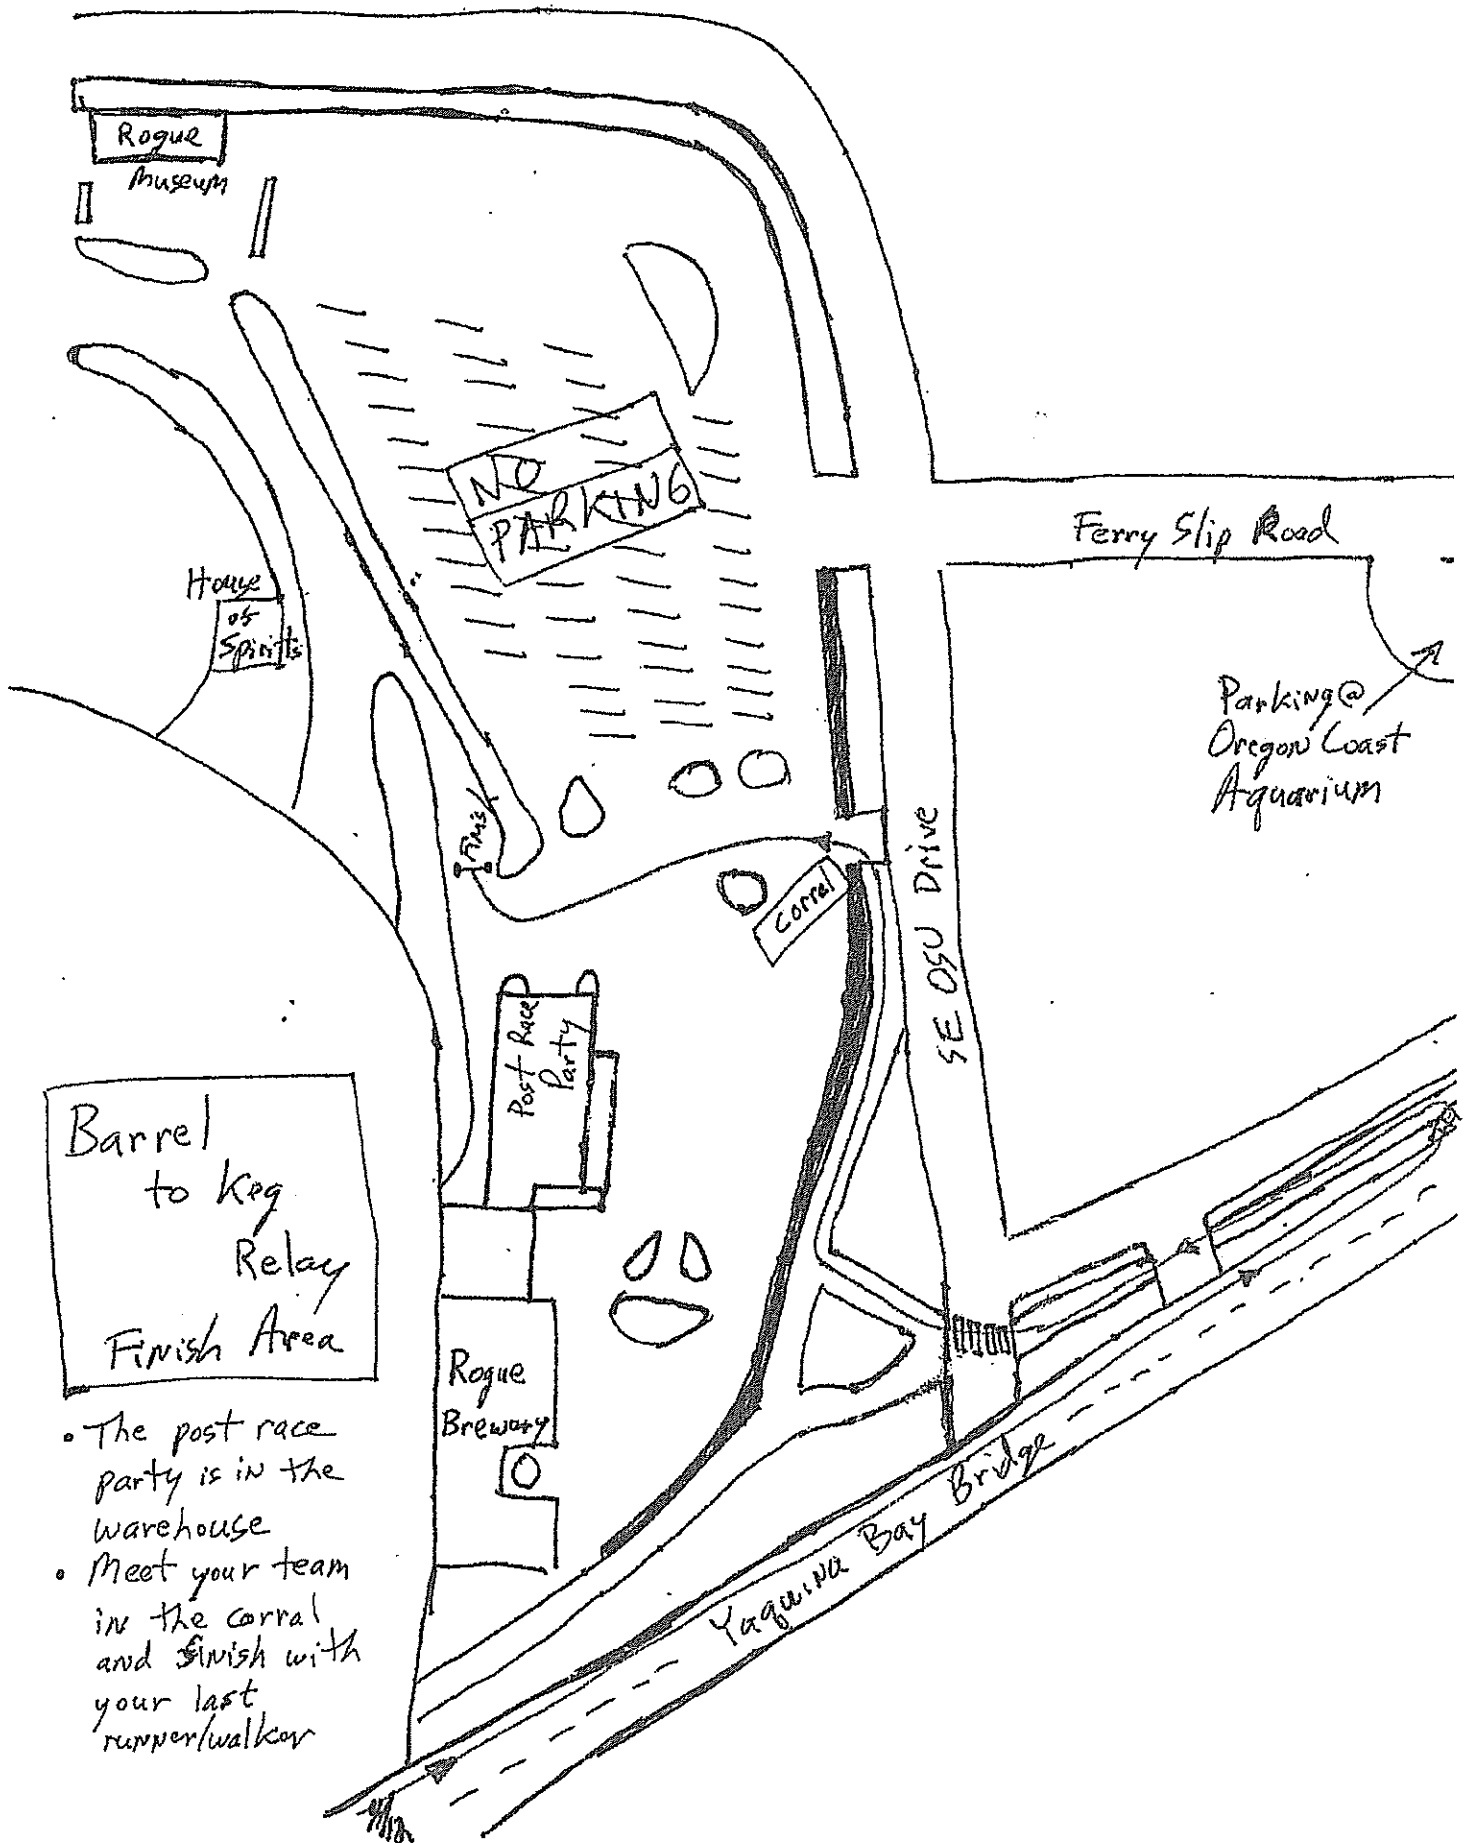 Rogue
Museum
NO
PARKING
Ferry Slip Road
House
of
Spirits
Parking @
Oregon Coast
Aquarium
Corral
SE OSU Drive
Post Race
Party
Barrel
to Keg
Relay
Finish Area
Rogue
Brewery
• The post race
party is in the
warehouse
• Meet your team
in the corral
and finish with
your last
runner/walker
Yaquina Bay Bridge